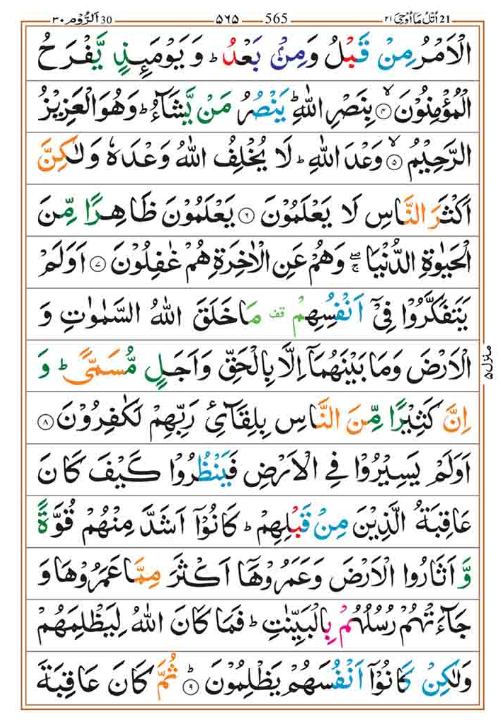 21 اُتْلُ مَاۤ اُوْحِیَ ۲۱ 565 ۵۶۵ 30 اَلرُّوْم ۳۰
الْاَمْرُ مِنْ قَبْلُ وَمِنْۢ بَعْدُ ؕ وَ یَوْمَىِٕذٍ یَّفْرَحُ
الْمُؤْمِنُوْنَ ۙ۝۴ بِنَصْرِ اللّٰهِ ؕ یَنْصُرُ مَنْ یَّشَآءُ ؕ وَهُوَ الْعَزِیْزُ
الرَّحِیْمُ ۙ۝۵ وَعْدَ اللّٰهِ ؕ لَا یُخْلِفُ اللّٰهُ وَعْدَهٗ وَلٰكِنَّ
اَكْثَرَ النَّاسِ لَا یَعْلَمُوْنَ ۝۶ یَعْلَمُوْنَ ظَاهِرًا مِّنَ
الْحَیٰوةِ الدُّنْیَا ۖۚ وَهُمْ عَنِ الْاٰخِرَةِ هُمْ غٰفِلُوْنَ ۝۷ اَوَلَمْ
یَتَفَكَّرُوْا فِیْۤ اَنْفُسِهِمْ قف مَاخَلَقَ اللّٰهُ السَّمٰوٰتِ وَ
الْاَرْضَ وَمَا بَیْنَهُمَاۤ اِلَّا بِالْحَقِّ وَاَجَلٍ مُّسَمًّی ؕ وَ
اِنَّ كَثِیْرًا مِّنَ النَّاسِ بِلِقَآئِ رَبِّهِمْ لَكٰفِرُوْنَ ۝۸
اَوَلَمْ یَسِیْرُوْا فِی الْاَرْضِ فَیَنْظُرُوْا كَیْفَ كَانَ
عَاقِبَةُ الَّذِیْنَ مِنْ قَبْلِهِمْ ؕ كَانُوْۤا اَشَدَّ مِنْهُمْ قُوَّةً
وَّ اَثَارُوا الْاَرْضَ وَعَمَرُوْهَاۤ اَكْثَرَ مِمَّا عَمَرُوْهَا وَ
جَآءَتْهُمْ رُسُلُهُمْ بِالْبَیِّنٰتِ ؕ فَمَا كَانَ اللّٰهُ لِیَظْلِمَهُمْ
وَلٰكِنْ كَانُوْۤا اَنْفُسَهُمْ یَظْلِمُوْنَ ؕ۝۹ ثُمَّ كَانَ عَاقِبَةَ
منزل۵